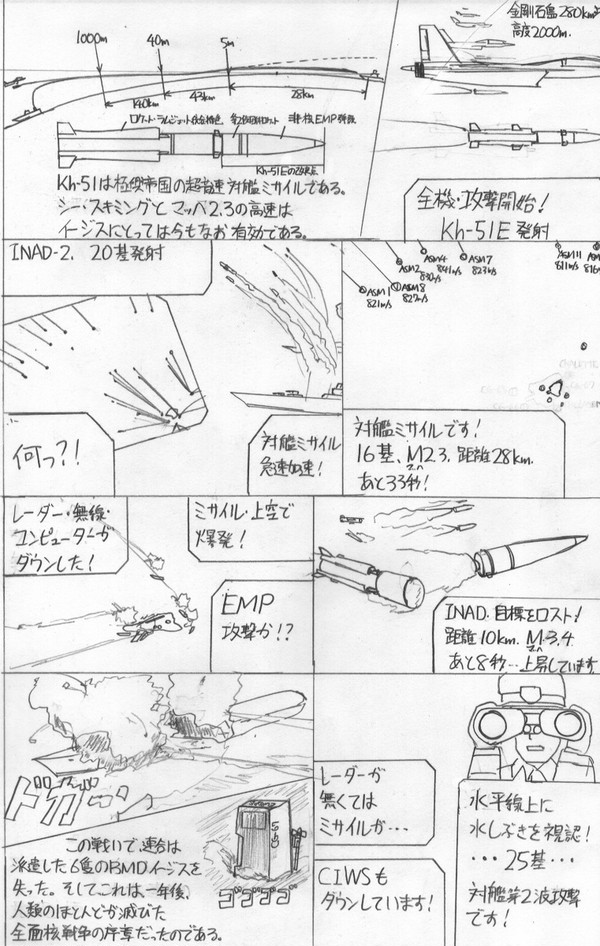 金剛石島280km
高度2000m.
全機・攻撃開始!
Kh-51E 発射
1000m
40m
5m
140km
42km
28km
ロケット・ラムジェット統合推進
第2段固体ロケット
非核EMP弾頭
Kh-51Eの2段目
Kh-51は極役帝国の超音速対艦ミサイルである。
シー・スキミングとマッハ2.3の高速は
イージスにとっては今もなお有効である。
ASM 4
841m/s
ASM 7
823m/s
ASM 2
830m/s
ASM 1
821m/s
ASM 8
827m/s
ASM 11
811m/s
対艦ミサイルです!
16基、M2.3. 距離28km.
あと33秒!
INAD-2. 20基発射
対艦ミサイル
急速加速!
何っ?!
INAD. 目標をロスト!
距離10km. M-3.4.
あと8秒…上昇しています
ミサイル・上空で
爆発!
レーダー・無線・
コンピューターが
ダウンした!
EMP
攻撃か!?
水平線上に
水しぶきを視認!
・・・25基・・・
対艦第2波攻撃
です!
レーダーが
無くては
ミサイルが・・・
CIWSも
ダウンしています!
ドガッ
この戦いで、連合は
派遣した6隻のBMDイージスを
失った。そしてこれは一年後、
人類のほとんどが滅びた
全面核戦争の序章だったのである。
ゴゴゴゴ